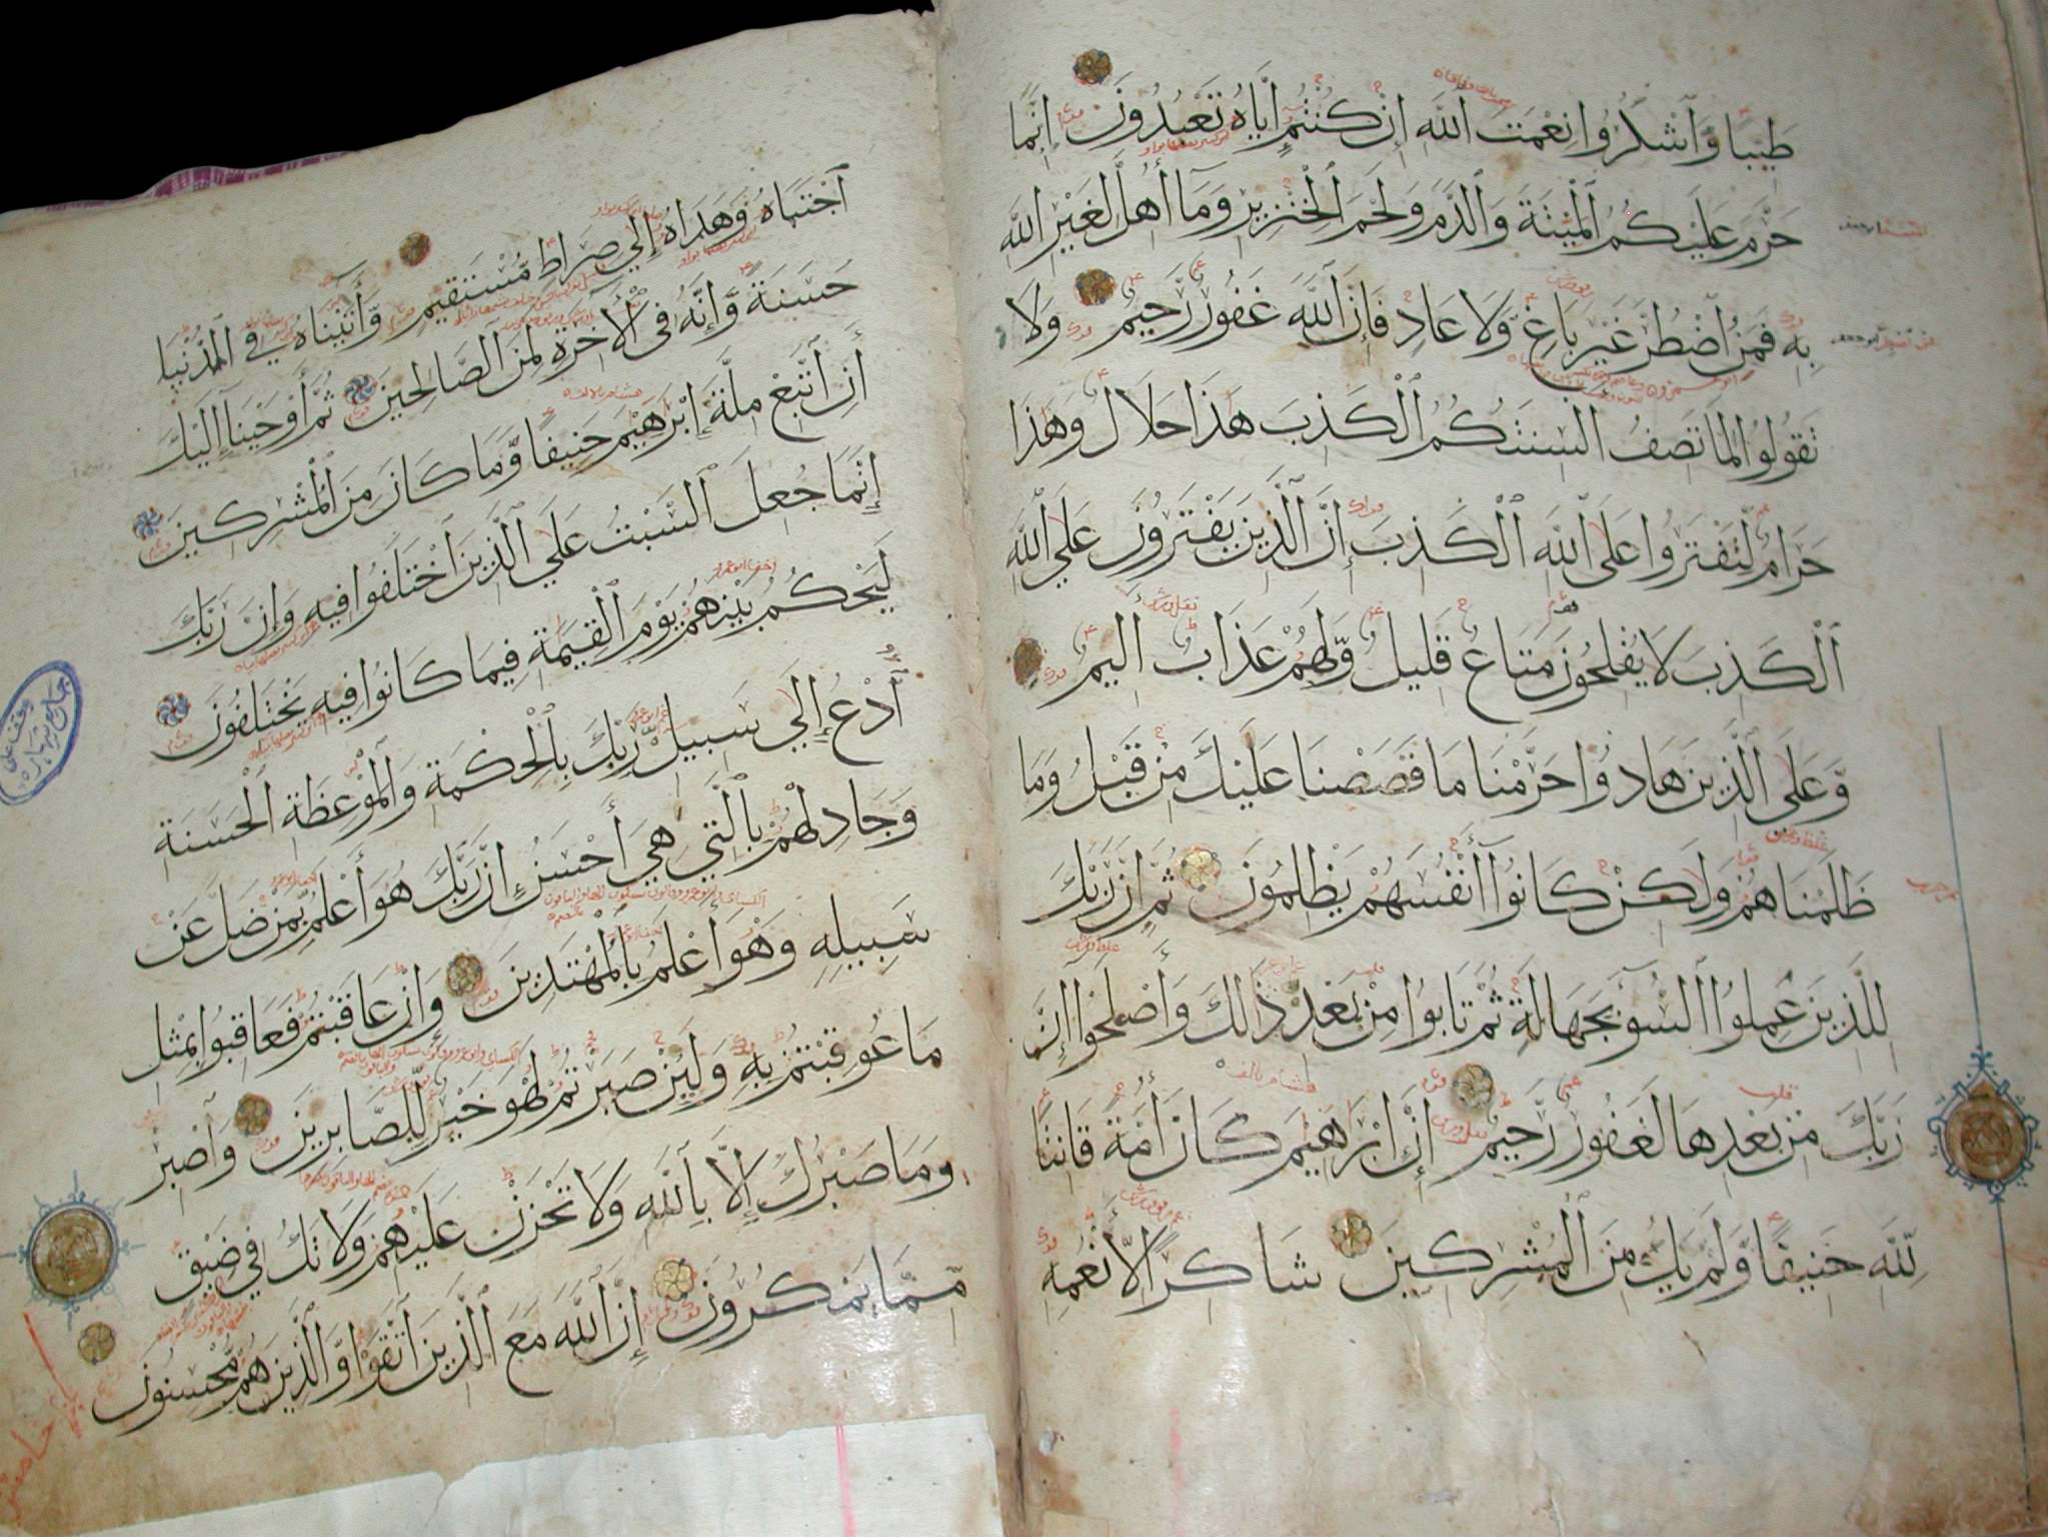 طَيِّبًا وَّاَشْكُرُوا نِعْمَتَ اَللَّهِ إِنْ كُنْتُمْ إِيَّاهُ تَعْبُدُونَ إِنَّمَا
حَرَّمَ عَلَيْكُمُ اَلْمَيْتَةَ وَالدَّمَ وَلَحْمَ اَلْخِنْزِيرِ وَمَا أُهِلَّ لِغَيْرِ اللَّهِ
بِهِ فَمَنِ اضْطُرَّ غَيْرَ بَاغٍ وَّلَا عَادٍ فَإِنَّ اَللَّهَ غَفُورٌ رَّحِيمٌ وَلَا
تَقُولُوا لِمَا تَصِفُ اَلْسِنَتُكُمُ اَلْكَذِبَ هَذَا حَلَالٌ وَهَذَا
حَرَامٌ لِّتَفْتَرُوا عَلَى اَللَّهِ اَلْكَذِبَ إِنَّ اَلَّذِينَ يَفْتَرُونَ عَلَى اللَّهِ
اَلْكَذِبَ لَا يُفْلِحُونَ مَتَاعٌ قَلِيلٌ وَّلَهُمْ عَذَابٌ اَلِيمٌ
وَّعَلَى اَلَّذِينَ هَادُوا حَرَّمْنَا مَا قَصَصْنَا عَلَيْكَ مِنْ قَبْلُ وَمَا
ظَلَمْنَاهُمْ وَلَكِنْ كَانُوا أَنْفُسَهُمْ يَظْلِمُونَ ثُمَّ إِنَّ رَبَّكَ
لِلَّذِينَ عَمِلُوا اَلسُّوءَ بِجَهَالَةٍ ثُمَّ تَابُوا مِنْ بَعْدِ ذَلِكَ وَأَصْلَحُوا إِنَّ
رَبَّكَ مِنْ بَعْدِهَا لَغَفُورٌ رَّحِيمٌ إِنَّ إِبْرَاهِيمَ كَانَ أُمَّةً قَانِتًا
لِّلَّهِ حَنِيفًا وَّلَمْ يَكُ مِنَ اَلْمُشْرِكِينَ شَاكِرًا لِّأَنْعُمِهِ
اَجْتَبَاهُ وَهَدَاهُ إِلَى صِرَاطٍ مُّسْتَقِيمٍ وَّآتَيْنَاهُ فِي اَلدُّنْيَا
حَسَنَةً وَّإِنَّهُ فِي اَلْآخِرَةِ لَمِنَ اَلصَّالِحِينَ ثُمَّ أَوْحَيْنَا إِلَيْكَ
أَنِ اَتَّبِعْ مِلَّةَ إِبْرَهِيمَ حَنِيفًا وَّمَا كَانَ مِنَ اَلْمُشْرِكِينَ
إِنَّمَا جُعِلَ اَلسَّبْتُ عَلَى اَلَّذِينَ اَخْتَلَفُوا فِيهِ وَإِنَّ رَبَّكَ
لَيَحْكُمُ بَيْنَهُمْ يَوْمَ اَلْقِيَمَةِ فِيمَا كَانُوا فِيهِ يَخْتَلِفُونَ
اَدْعُ إِلَى سَبِيلِ رَبِّكَ بِالْحِكْمَةِ وَالْمَوْعِظَةِ اَلْحَسَنَةِ
وَجَادِلْهُمْ بِالَّتِي هِيَ أَحْسَنُ إِنَّ رَبَّكَ هُوَ أَعْلَمُ بِمَنْ ضَلَّ عَنْ
سَبِيلِهِ وَهُوَ أَعْلَمُ بِالْمُهْتَدِينَ وَإِنْ عَاقَبْتُمْ فَعَاقِبُوا بِمِثْلِ
مَا عُوقِبْتُمْ بِهِ وَلَئِنْ صَبَرْتُمْ لَهُوَ خَيْرٌ لِّلصَّابِرِينَ وَاَصْبِرْ
وَمَا صَبْرُكَ إِلَّا بِاللَّهِ وَلَا تَحْزَنْ عَلَيْهِمْ وَلَا تَكُ فِي ضَيْقٍ
مِّمَّا يَمْكُرُونَ إِنَّ اَللَّهَ مَعَ اَلَّذِينَ اَتَّقَوْا وَّالَّذِينَ هُمْ مُّحْسِنُونَ